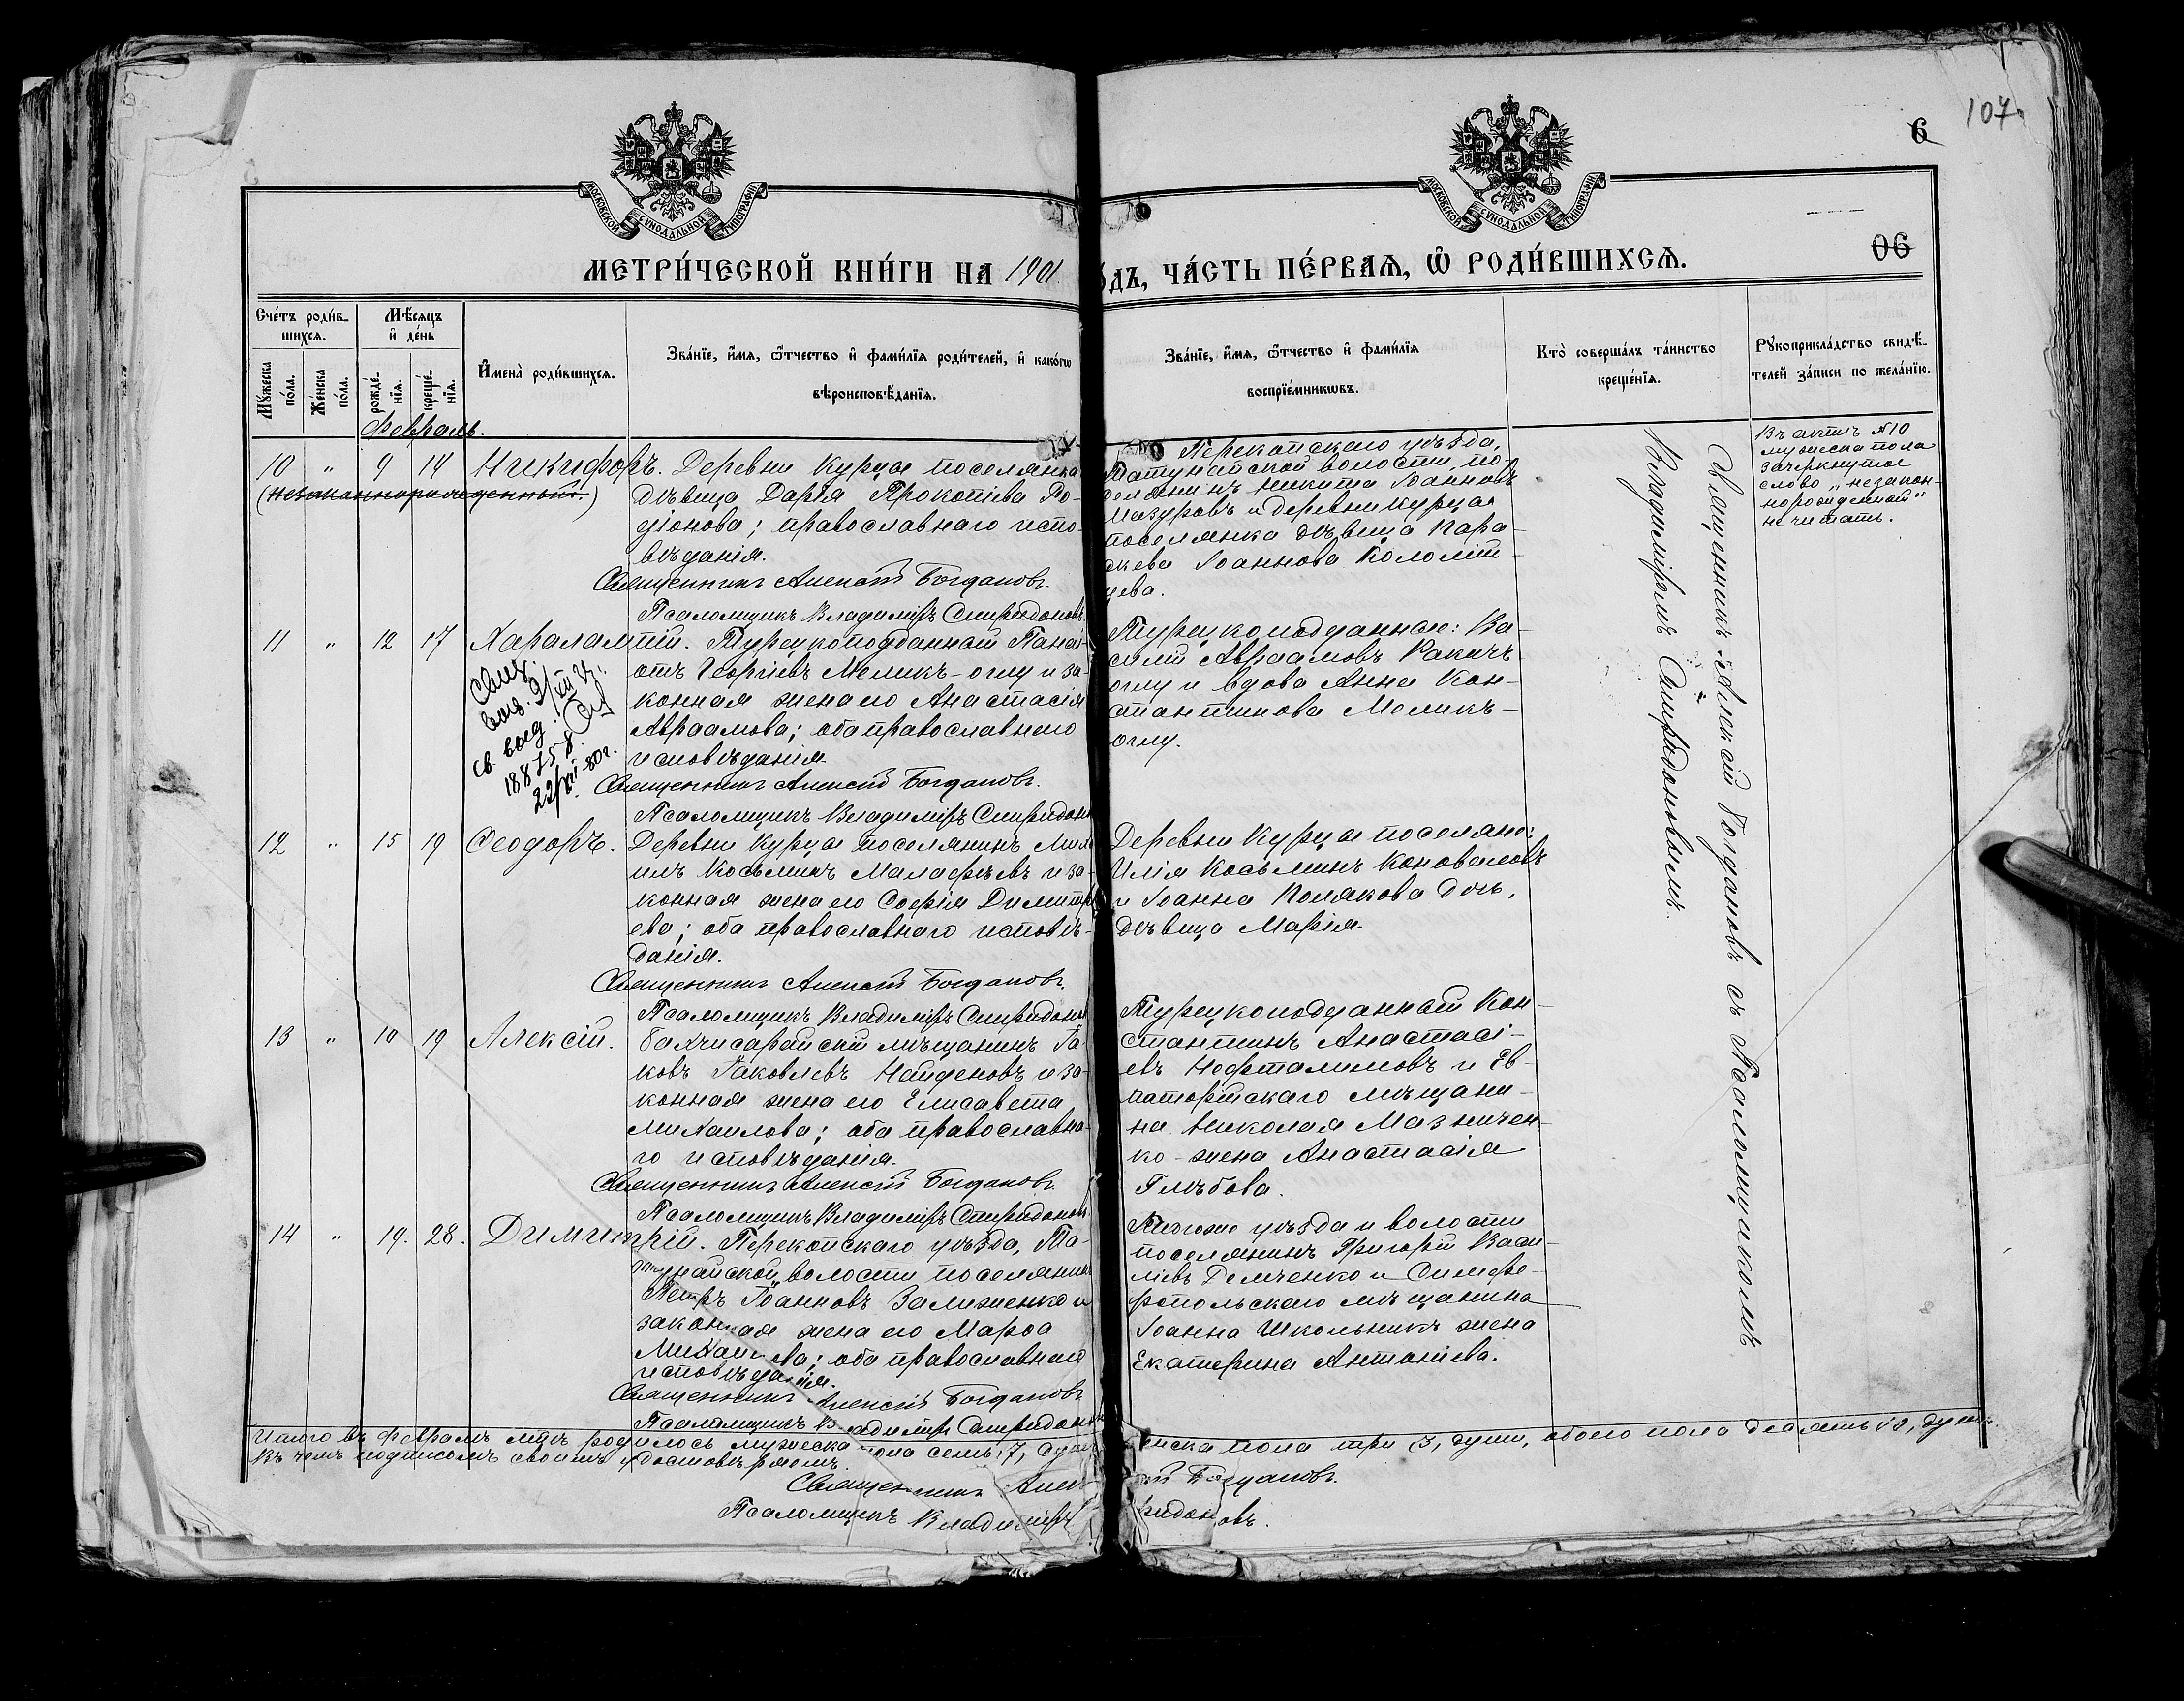 107
6
МОСКОВСКОЙ СѴНОДАЛЬНОЙ ТИПОГРАФІИ
МОСКОВСКОЙ СѴНОДАЛЬНОЙ ТИПОГРАФІИ
06
МЕТРИ́ЧЕСКОЙ КНИ́ГИ НА 1901
ОДЪ, ЧА́СТЬ ПЕ́РВАЯ, Ѡ РОДИ́ВШИХСЯ.
Сче́тъ роди́в-
шихся.
Мѣ́сяцъ
и҆ де́нь
Мꙋ́жеска по́ла.
Же́нска по́ла.
рожде́-нїя.
креще́-нїя.
И҆мена̀ роди́вшихся.
Зва́нїе, и҆́мя, ѻ҆́тчество и҆ фами́лїя роди́телей, и҆ како́гѡ
вѣроисповѣ́данїя.
Зва́нїе, и҆́мя, ѻ҆́тчество и҆ фами́лїя
воспрїе́мникѡвъ.
Кто̀ соверша́лъ та́инство
креще́нїя.
Рꙋкоприкла́дство свидѣ́-
телей за́писи по жела́нїю.
Февраль.
10 " 9 14 Никифоръ.
(незаконнорожденный.)
Деревни Курцы поселянка
дѣвица Дарія Прокопіева Ро-
діонова; православнаго испо-
вѣданія.
Священникъ Алексій Богдановъ.
Псаломщикъ Владиміръ Спиридоновъ.
Перекопскаго уѣзда,
Татунайской волости, по-
селянинъ Никита Іоанновъ
Мазуровъ и деревни Курцы
поселянка дѣвица Пара-
скева Іоаннова Коломій-
цева.
Въ актѣ №10
мужеска пола
зачеркнутое
слово "незакон-
норожденный"
не читать.
11 " 12 17 Харалампій.
Турецкоподданный Пана-
отъ Георгіевъ Меликъ-оглу и за-
конная жена его Анастасія
Авраамова; оба православнаго
исповѣданія.
Священникъ Алексій Богдановъ.
Псаломщикъ Владиміръ Спиридон
св. выд.
18875
22/XII-80г.
Турецкоподданные: Ва-
силій Авраамовъ Какичъ-
оглу и вдова Анна Кон-
стантинова Меликъ-
оглу.
12 " 15 19 Ѳеодоръ.
Деревни Курцы поселянинъ Миха
илъ Косьминъ Малафѣевъ и за-
конная жена его Софія Димитрі
ева; оба православнаго исповѣ-
данія.
Священникъ Алексій Богдановъ.
Псаломщикъ Владиміръ Спиридон
Деревни Курцы поселяне:
Илія Косьминъ Коноваловъ
и Іоанна Полякова дочь,
дѣвица Марія.
13 " 10 19 Алексій.
Бахчисарайскій мѣщанинъ Іа-
ковъ Іаковлевъ Найденовъ и за-
конная жена его Елисавета
Михаилова; оба православна-
го исповѣданія.
Священникъ Алексій Богдановъ.
Псаломщикъ Владиміръ Спиридонов
Турецкоподданный Кон-
стантинъ Анастасі-
евъ Нефталимовъ и Ев-
паторійскаго мѣщани-
на Николая Мазничен-
ко-жена Анастасія
Глѣбова.
14 " 19. 28. Димитрій.
Перекопскаго уѣзда, Та-
тунайской волости поселянинъ
Петръ Іоанновъ Залиженко и
законная жена его Марѳа
Михаилова; оба православнаго
исповѣданія.
Священникъ Алексій Богдановъ
Псаломщикъ Владиміръ Спиридонов
Того же уѣзда и волости
поселянинъ Григорій Васи-
ліевъ Демченко и Симфе-
ропольскаго мѣщанина
Іоанна Школьникъ жена
Екатерина Антоніева.
Священникъ Алексій Богдановъ съ Псаломщикомъ
Владиміромъ Спиридоновымъ.
Итого въ Февралѣ мцѣ родилось мужеска пола семь, 7, душъ
женска пола три 3, души, обоего пола десять 10, душъ.
Въ чемъ подписомъ своимъ удостовѣряемъ.
Священникъ Алексій Богдановъ.
Псаломщикъ Владиміръ Спиридоновъ.